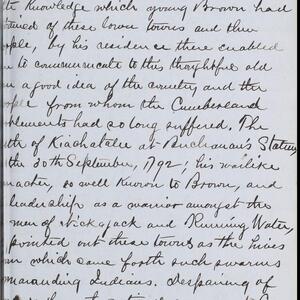 Knowledge which young Brown had
tained of these lower towns and their
ople, by his residence there enabled
to communicate to this thoughtful old
an a good idea of the country and the
ople from whom the Cumberland
lements had so long suffered. The
th of Kiachatalee at Buchanan's Station
the 30th September, 1792; his warlike
nacter, so well known to Brown, and
leadership as a warrior amongst the
men of Nickajack and Running Water,
pointed out these towns as the hives
om which came forth such swarms
marauding Indians. Despairing of